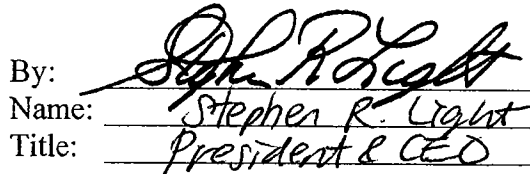 By: Stephen R Light
Name: Stephen R. Light
Title: President & CEO